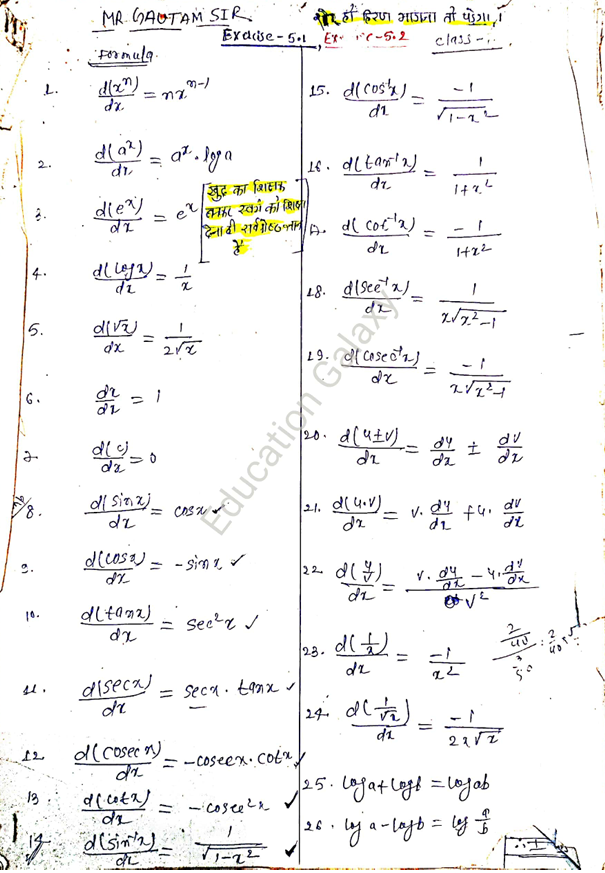 MR. GAUTAM SIR
शेर हो हिरण भागना तो पड़ेगा।
Exercise-5.1, Exercise-5.2 class-
Formula
1. d(xⁿ)/dx = nxⁿ⁻¹
2. d(aˣ)/dx = aˣ · log a
3. d(eˣ)/dx = eˣ
खुद का शिक्षक
बनकर स्वयं को शिक्षा
देना ही सर्वश्रेष्ठ
है
4. d(log x)/dx = 1/x
5. d(√x)/dx = 1/2√x
6. dx/dx = 1
7. d(c)/dx = 0
8. d(sin x)/dx = cos x ✓
9. d(cos x)/dx = -sin x ✓
10. d(tan x)/dx = sec²x ✓
11. d(sec x)/dx = sec x · tan x ✓
12. d(cosec x)/dx = -cosec x · cot x ✓
13. d(cot x)/dx = -cosec²x ✓
14. d(sin⁻¹x)/dx = 1/√1-x² ✓
15. d(cos⁻¹x)/dx = -1/√1-x²
16. d(tan⁻¹x)/dx = 1/1+x²
17. d(cot⁻¹x)/dx = -1/1+x²
18. d(sec⁻¹x)/dx = 1/x√x²-1
19. d(cosec⁻¹x)/dx = -1/x√x²-1
20. d(u±v)/dx = du/dx ± dv/dx
21. d(u·v)/dx = v· du/dx + u· dv/dx
22. d(u/v)/dx = v· du/dx - u· dv/dx / v²
23. d(1/x)/dx = -1/x²
24. d(1/√x)/dx = -1/2x√x
25. log a + log b = log ab
26. log a - log b = log a/b
Education Galaxy